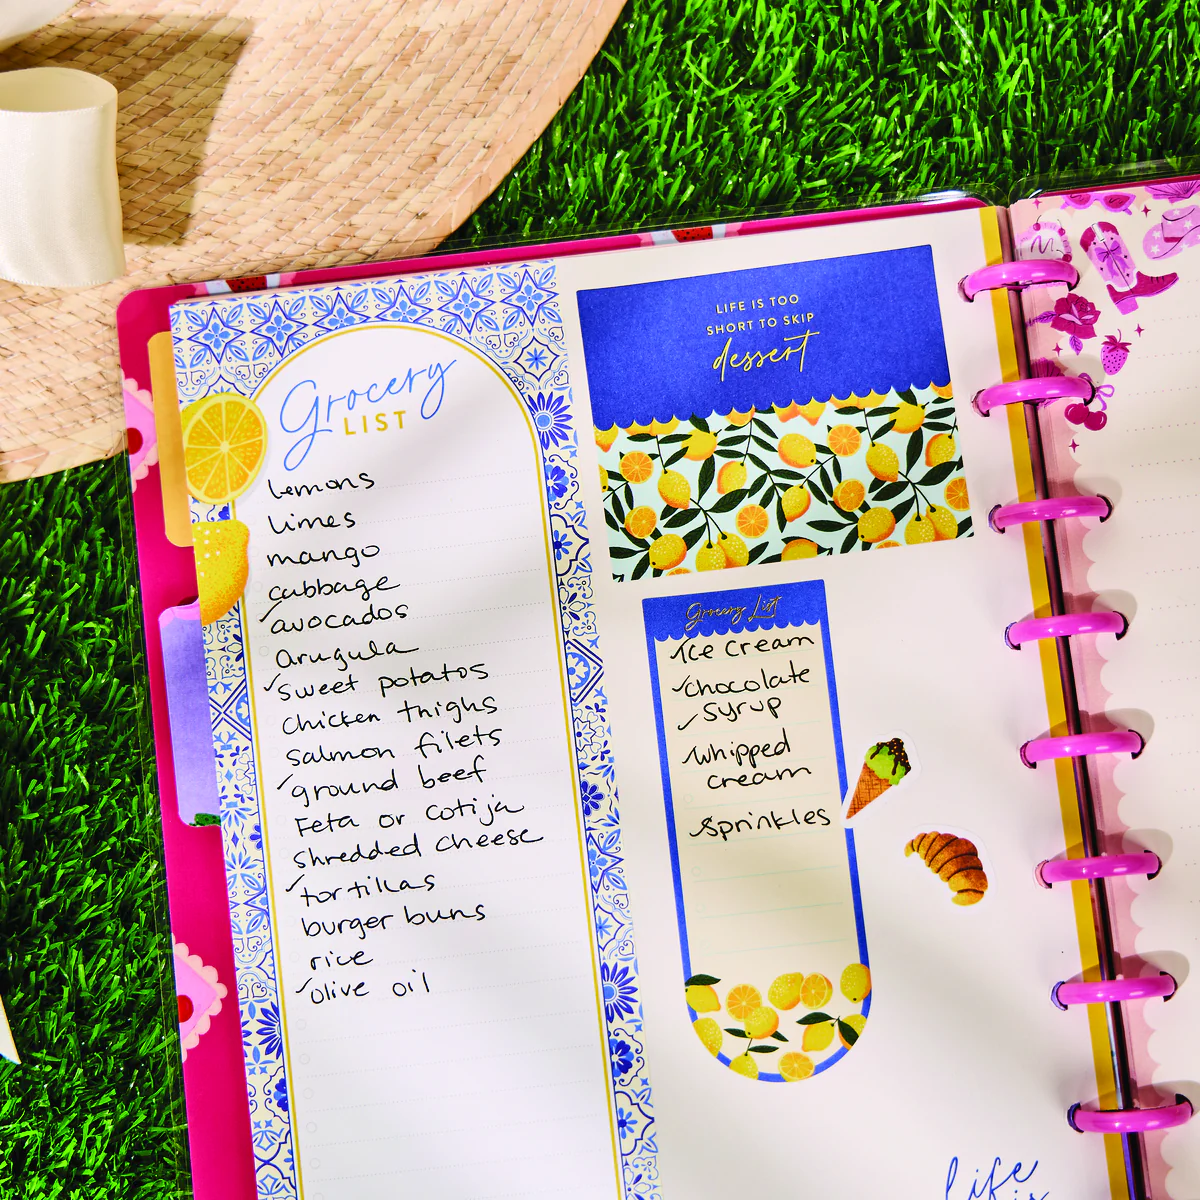 Grocery
LIST
Lemons
Limes
mango
cabbage
✓avocados
arugula
✓sweet potatos
chicken thighs
salmon filets
✓ground beef
Feta or cotija
shredded cheese
✓tortillas
burger buns
rice
✓olive oil
LIFE IS TOO
SHORT TO SKIP
dessert
Grocery List
✓Ice cream
✓chocolate
✓syrup
✓whipped
cream
✓sprinkles
life
is